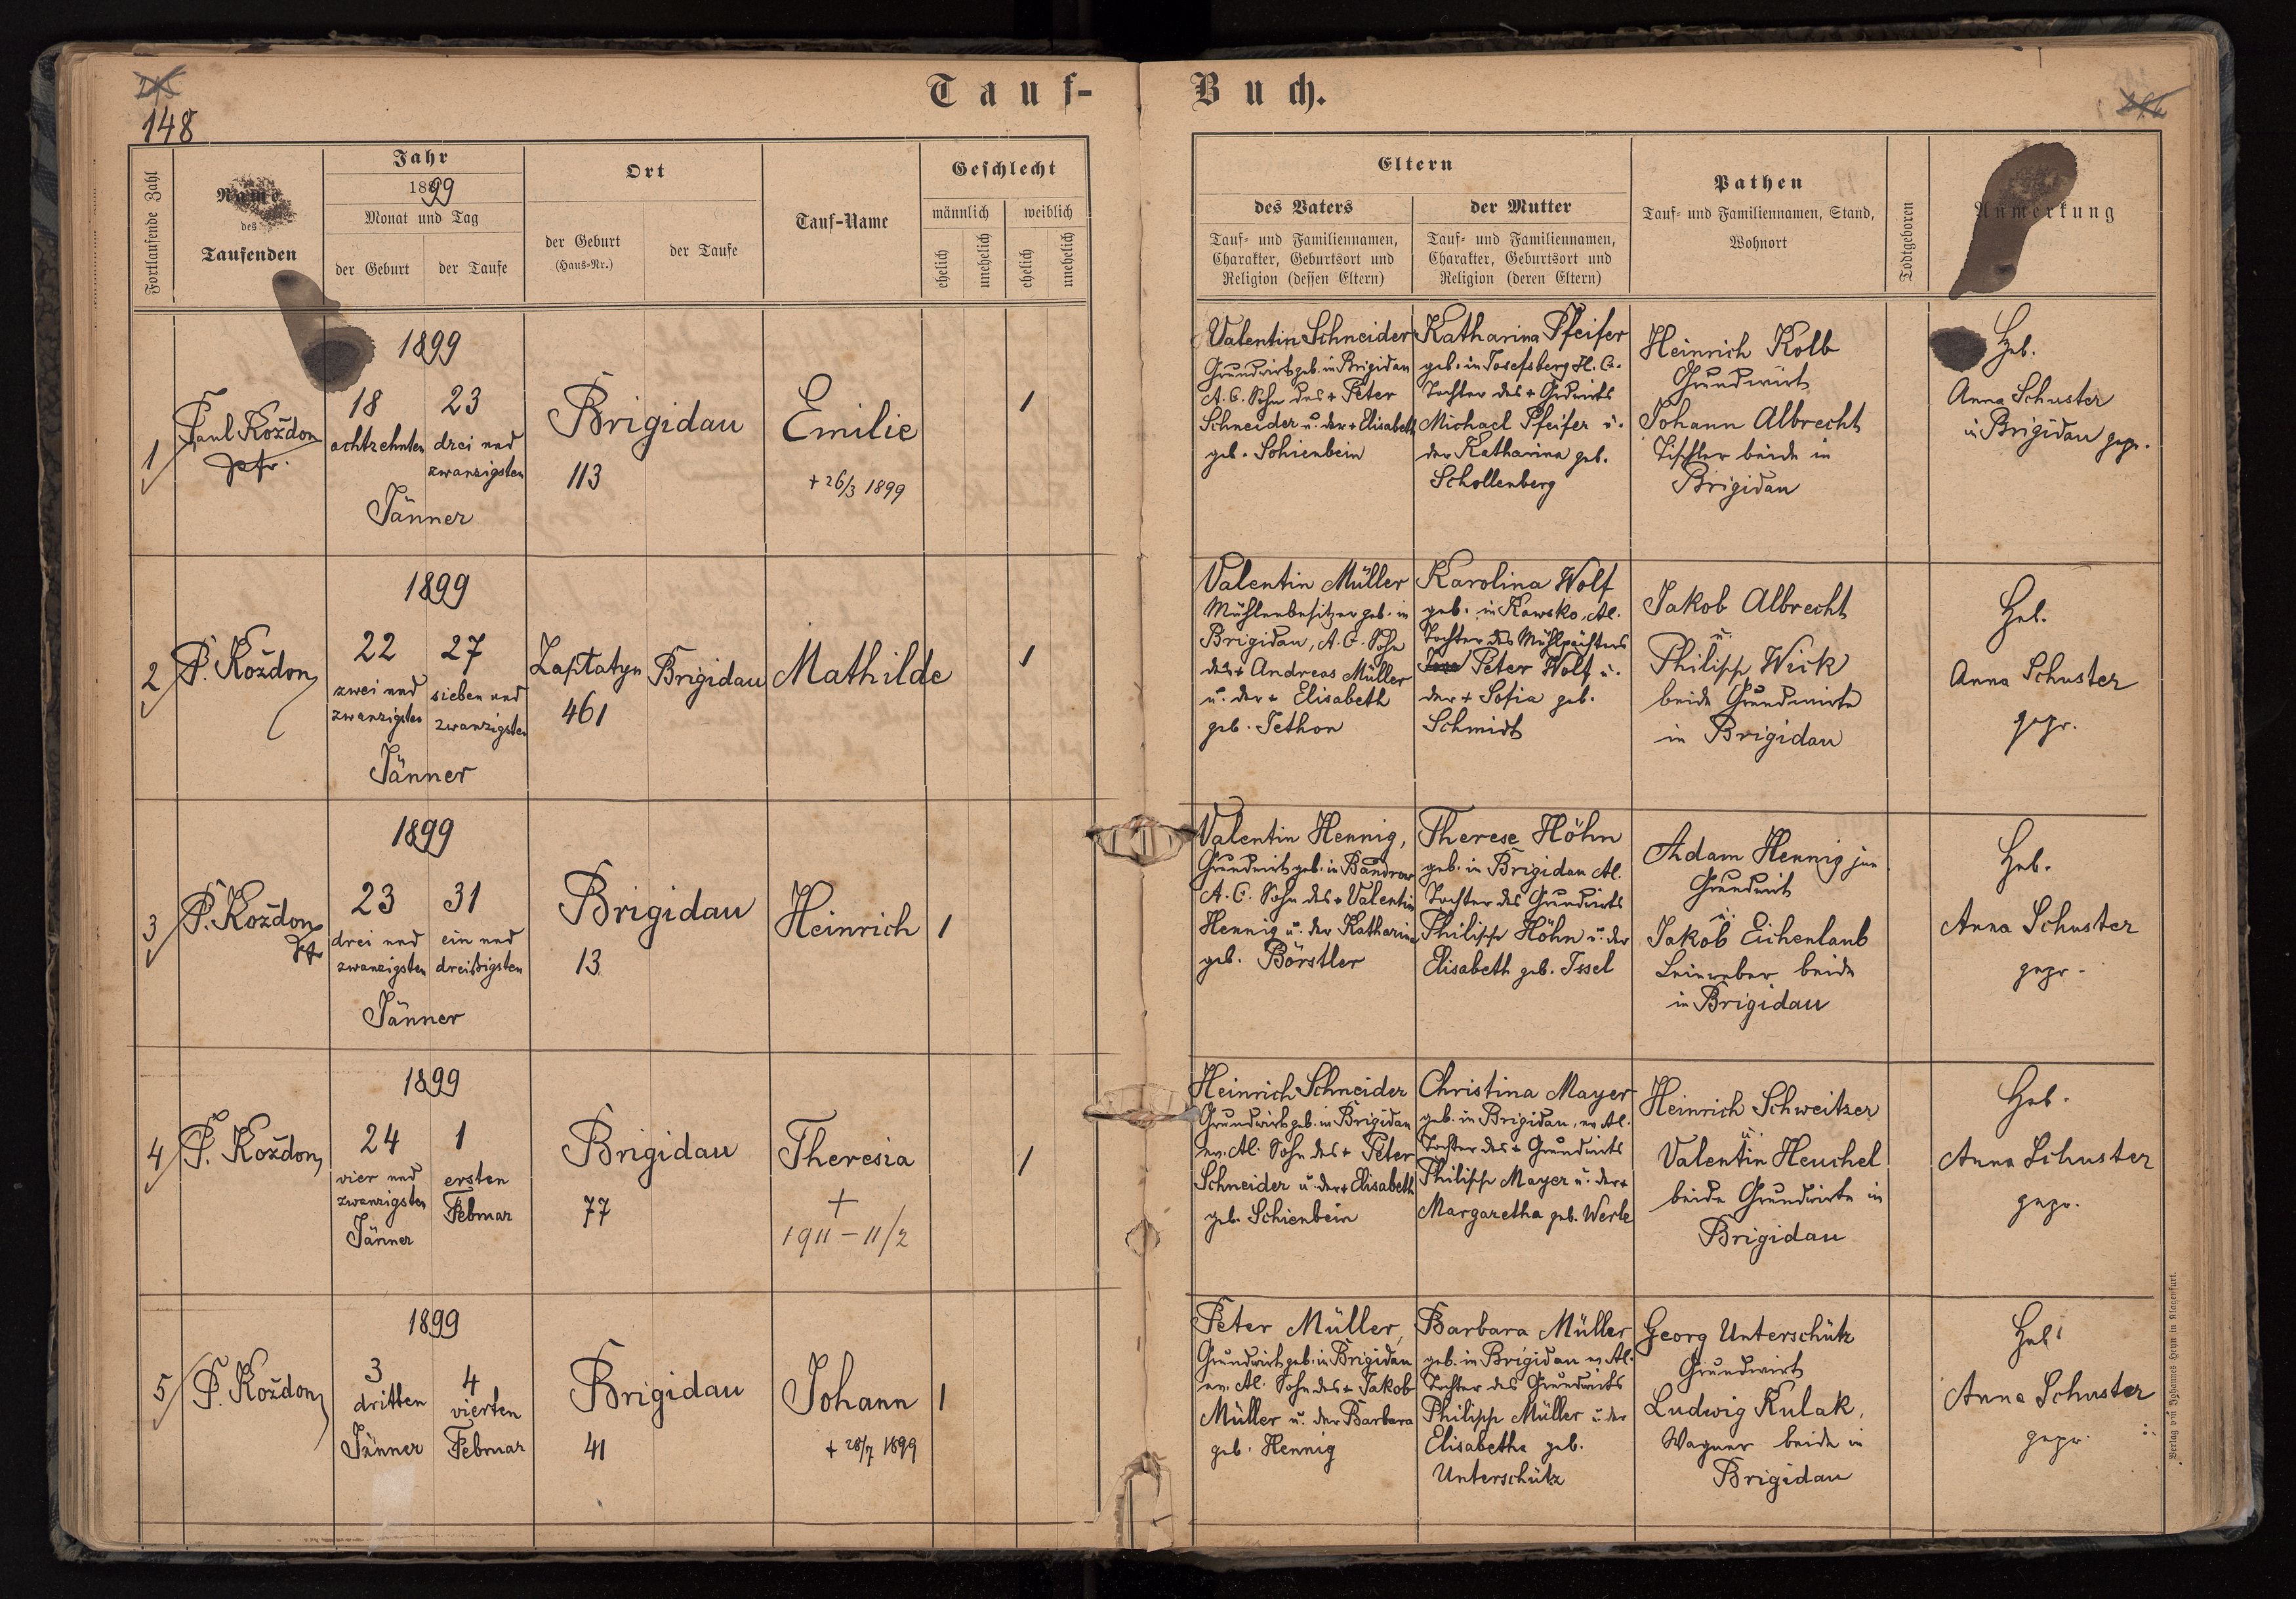 Tauf-Buch.
148
Fortlaufende Zahl
Name
des
Taufenden
Jahr
1899
Monat und Tag
der Geburt
der Taufe
Ort
der Geburt
(Haus-Nr.)
der Taufe
Tauf-Name
Geschlecht
männlich
weiblich
ehelich
unehelich
ehelich
unehelich
Eltern
des Vaters
Tauf- und Familiennamen,
Charakter, Geburtsort und
Religion (dessen Eltern)
der Mutter
Tauf- und Familiennamen,
Charakter, Geburtsort und
Religion (deren Eltern)
Pathen
Tauf- und Familiennamen, Stand,
Wohnort
Todtgeboren
Anmerkung
1
Paul Koždon
pfr.
1899
18
achtzehnten
23
drei und
zwanzigsten
Jänner
Brigidau
113
Emilie
+ 26/3 1899
1
Valentin Schneider
Grundwirt geb. in Brigidau
A. C. Sohn des + Peter
Schneider u. der + Elisabeth
geb. Schienbein
Katharina Pfeifer
geb. in Josefsberg H. C.
Tochter des + Grdwirts
Michael Pfeifer u.
der Katharina geb.
Schollenberg
Heinrich Kolb
Grundwirt
Johann Albrecht
Tischler beide in
Brigidau
Heb.
Anna Schuster
in Brigidau gepr.
2
P. Koždon
1899
22
zwei und
zwanzigsten
27
sieben und
zwanzigsten
Jänner
461
Brigidau
Mathilde
1
Valentin Müller
Mühlenbesitzer geb. in
Brigidau, A. C. Sohn
des + Andreas Müller
u. der + Elisabeth
geb. Jethon
Karolina Wolf
geb. in Kawsko, Al.
Tochter des Mühlpächters
Peter Wolf u.
der + Sofia geb.
Schmidt
Jakob Albrecht
u.
Philipp Wick
beide Grundwirte
in Brigidau
Heb.
Anna Schuster
gepr.
3
P. Koždon
pfr
1899
23
drei und
zwanzigsten
31
ein und
dreißigsten
Jänner
Brigidau
13
Heinrich
1
Valentin Hennig,
Grundwirt geb. in Bandrow
A. C. Sohn des + Valentin
Hennig u. der Katharina
geb. Börstler
Therese Höhn
geb. in Brigidau Al.
Tochter des Grundwirts
Philipp Höhn u. der
Elisabeth geb. Issel
Adam Hennig jun
Grundwirt
u.
Jakob Eichenlaub
Leinweber beide
in Brigidau
Heb.
Anna Schuster
gepr.
4
P. Koždon
1899
24
vier und
zwanzigsten
Jänner
1
ersten
Februar
Brigidau
77
Theresia
+
1911 - 11/2
1
Heinrich Schneider
Grundwirt geb. in Brigidau
ev. Al. Sohn des + Peter
Schneider u. der + Elisabeth
geb. Schienbein
Christina Mayer
geb. in Brigidau, ev. Al.
Tochter des + Grundwirts
Philipp Mayer u. der +
Margaretha geb. Werle
Heinrich Schweitzer
u.
Valentin Heuchel
beide Grundwirte in
Brigidau
Heb.
Anna Schuster
gepr.
5
P. Koždon
1899
3
dritten
Jänner
4
vierten
Februar
Brigidau
41
Johann
+ 28/7 1899
1
Peter Müller,
Grundwirt geb. in Brigidau
ev. Al. Sohn des + Jakob
Müller u. der Barbara
geb. Hennig
Barbara Müller
geb. in Brigidau ev. Al.
Tochter des Grundwirts
Philipp Müller u. der
Elisabetha geb.
Unterschütz
Georg Unterschütz
Grundwirt
Ludwig Kulak,
Wagner beide in
Brigidau
Heb.
Anna Schuster
gepr.
Verlag von Johannes Heyn in Klagenfurt.